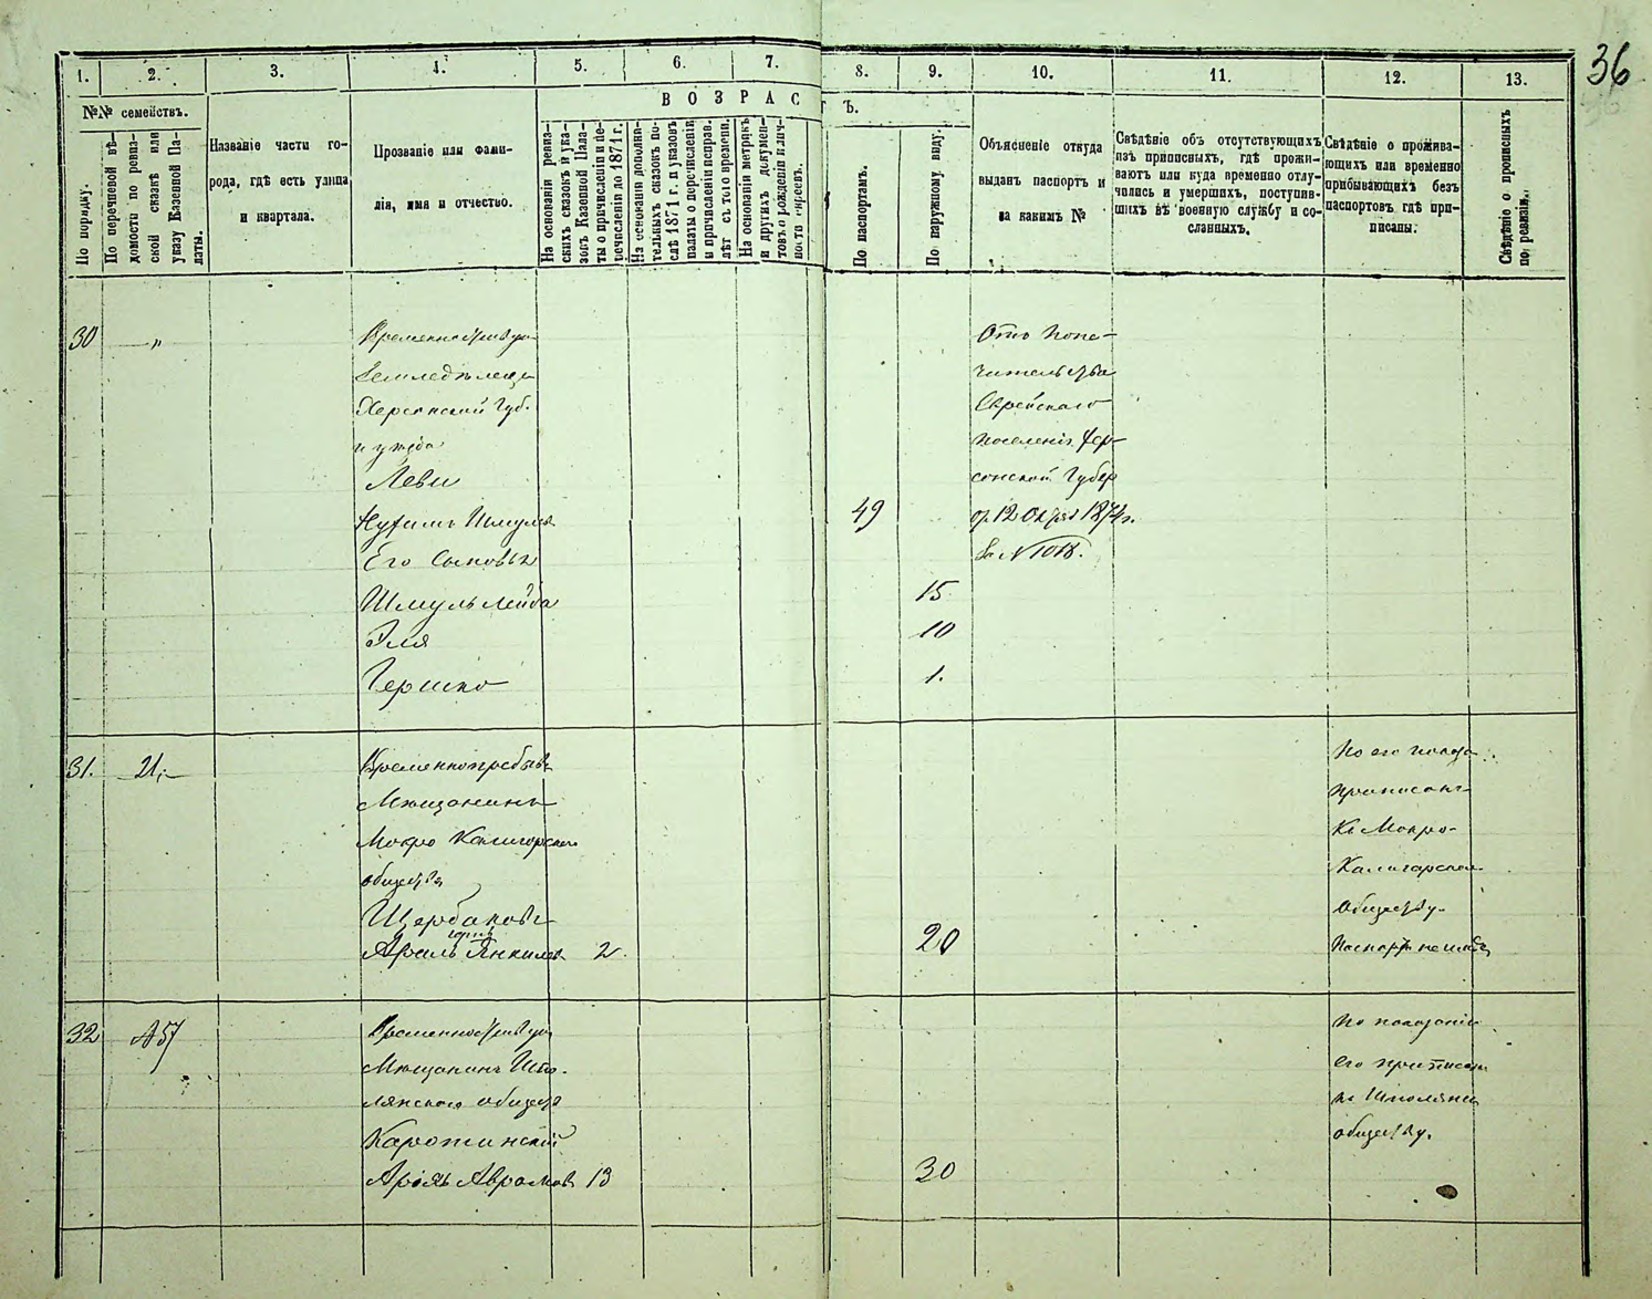 36
1. 2. 3. 4. 5. 6. 7. 8. 9. 10. 11. 12. 13.
№№ семействъ.
ВОЗРАСТЪ.
По порядку.
По перечневой вѣ-
домости по ревиз-
ской сказкѣ или
указу Казенной Па-
латы.
Названіе части го-
рода, гдѣ есть улица
и квартала.
Прозваніе или фами-
лія, имя и отчество.
На основаніи ревиз-
скихъ сказокъ и ука-
зовъ Казенной Пала-
ты о причисленіи и пе-
речисленіи до 1871 г.
На основаніи дополни-
тельныхъ сказокъ по-
слѣ 1871 г. и указовъ
палаты о перечисленіи
и причисленіи исправ.
лѣт съ того времени.
На основаніи метрикъ
и другихъ докумен-
товъ о рожденіи и лич-
ности евреевъ.
По паспортамъ.
По наружному виду.
Объясненіе откуда
выданъ паспортъ и
за какимъ №
Свѣдѣніе объ отсутствующихъ
изъ приписныхъ, гдѣ прожи-
ваютъ или куда временно отлу-
чались и умершихъ, поступив-
шихъ въ военную службу и со-
сланныхъ.
Свѣдѣніе о прожива-
ющихъ или временно
прибывающихъ безъ
паспортовъ гдѣ при-
писаны.
Свѣдѣніе о прописныхъ
по ревизіи.
30 — "
Херсонской Губ.
и уѣзда
Леви
49
Его сыновья
Шмуль Лейба 15
Эля 10
Гершко 1.
Отъ Попе-
чительства
Еврейскаго
поселенія Хер-
сонской Губер
от 12 Октяб 1874 г.
за № 1018.
31. 21,—
Временнопребыв
Мѣщанинъ
Мокро Калигорскаго
общества
Щербаковъ
Янкилев 2. 20
По его показа
приписанъ
къ Мокро-
Калигорском
Обществу.
32 457
Мѣщанинъ Шпо-
лянскаго общест
Аврамов 13 30
По показанію
его приписан
къ Шполянск
обществу.